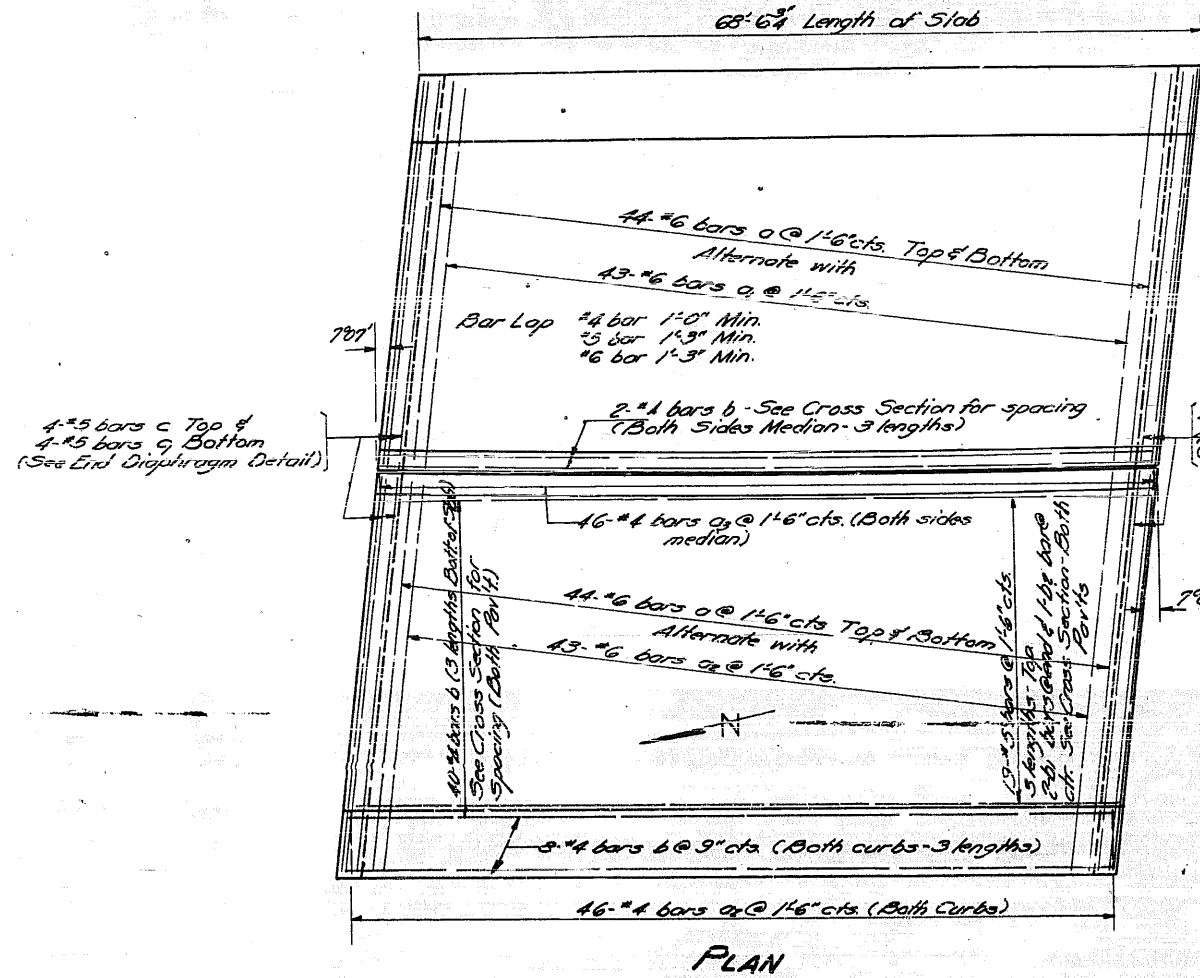 68'-6 3/4" Length of Slab
44-#6 bars a @ 1'-6" cts. Top & Bottom
Alternate with
43-#6 bars a1 @ 1'-6" cts.
Bar Lap #4 bar 1'-0" Min.
#5 bar 1'-3" Min.
#6 bar 1'-3" Min.
4-#5 bars c Top &
4-#5 bars c1 Bottom
(See End Diaphragm Detail)
2-#4 bars b - See Cross Section for spacing
(Both Sides Median - 3 lengths)
46-#4 bars a3 @ 1'-6" cts. (Both sides
median)
40-#4 bars b (3 lengths Bott of Slab)
See Cross Section for
Spacing (Both Pav't.)
44-#6 bars a @ 1'-6" cts Top & Bottom
Alternate with
43-#6 bars @ 1'-6" cts.
19-#5 bars @ 1'-6" cts.
3 lengths Top
See Cross Section - Both
Pav'ts
N
8-#4 bars b @ 9" cts. (Both curbs - 3 lengths)
46-#4 bars a2 @ 1'-6" cts. (Both Curbs)
PLAN